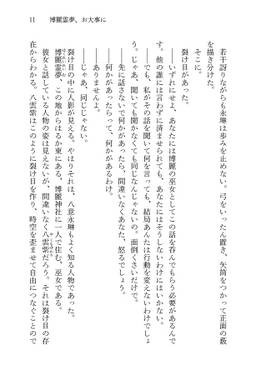 11　博麗霊夢、お大事に
若干訝りながらも永琳は歩みを止めない。弓をいったん置き、矢筒をつかって正面の藪
を掻き分けた。
そこに。
裂け目があった。
――いずれにせよ、あなたには博麗の巫女としてこの話を呑んでもらう必要があるんで
す。他の誰には言わずに済ませられても、あなたにはそうしないわけにはいかない。
でも、私がその話を聞いて何を言っても、結局あんたは行動を変えないわけでしょ
う。じゃあ、聞いても聞かなくても同じなんじゃないの。面倒くさいだけで。
――先に話さないで何かがあったら、間違いなくあなた、怒るでしょう。
――何かがあったらって、何かがあるわけ。
ありませんよ。
――じゃあ、同じじゃない。
裂け目の中に人影が見える。やはりそれは、八意永琳もよく知る人物であった。
博麗霊夢。この地からはるか東にある、博麗神社に一人で住む、巫女である。
彼女と話している人物の姿は見えないが、間違いなく八雲紫だろう。それは裂け目の存
在からわかる。八雲紫はこのように裂け目を作り、時空を歪ませて自由につなぐことので